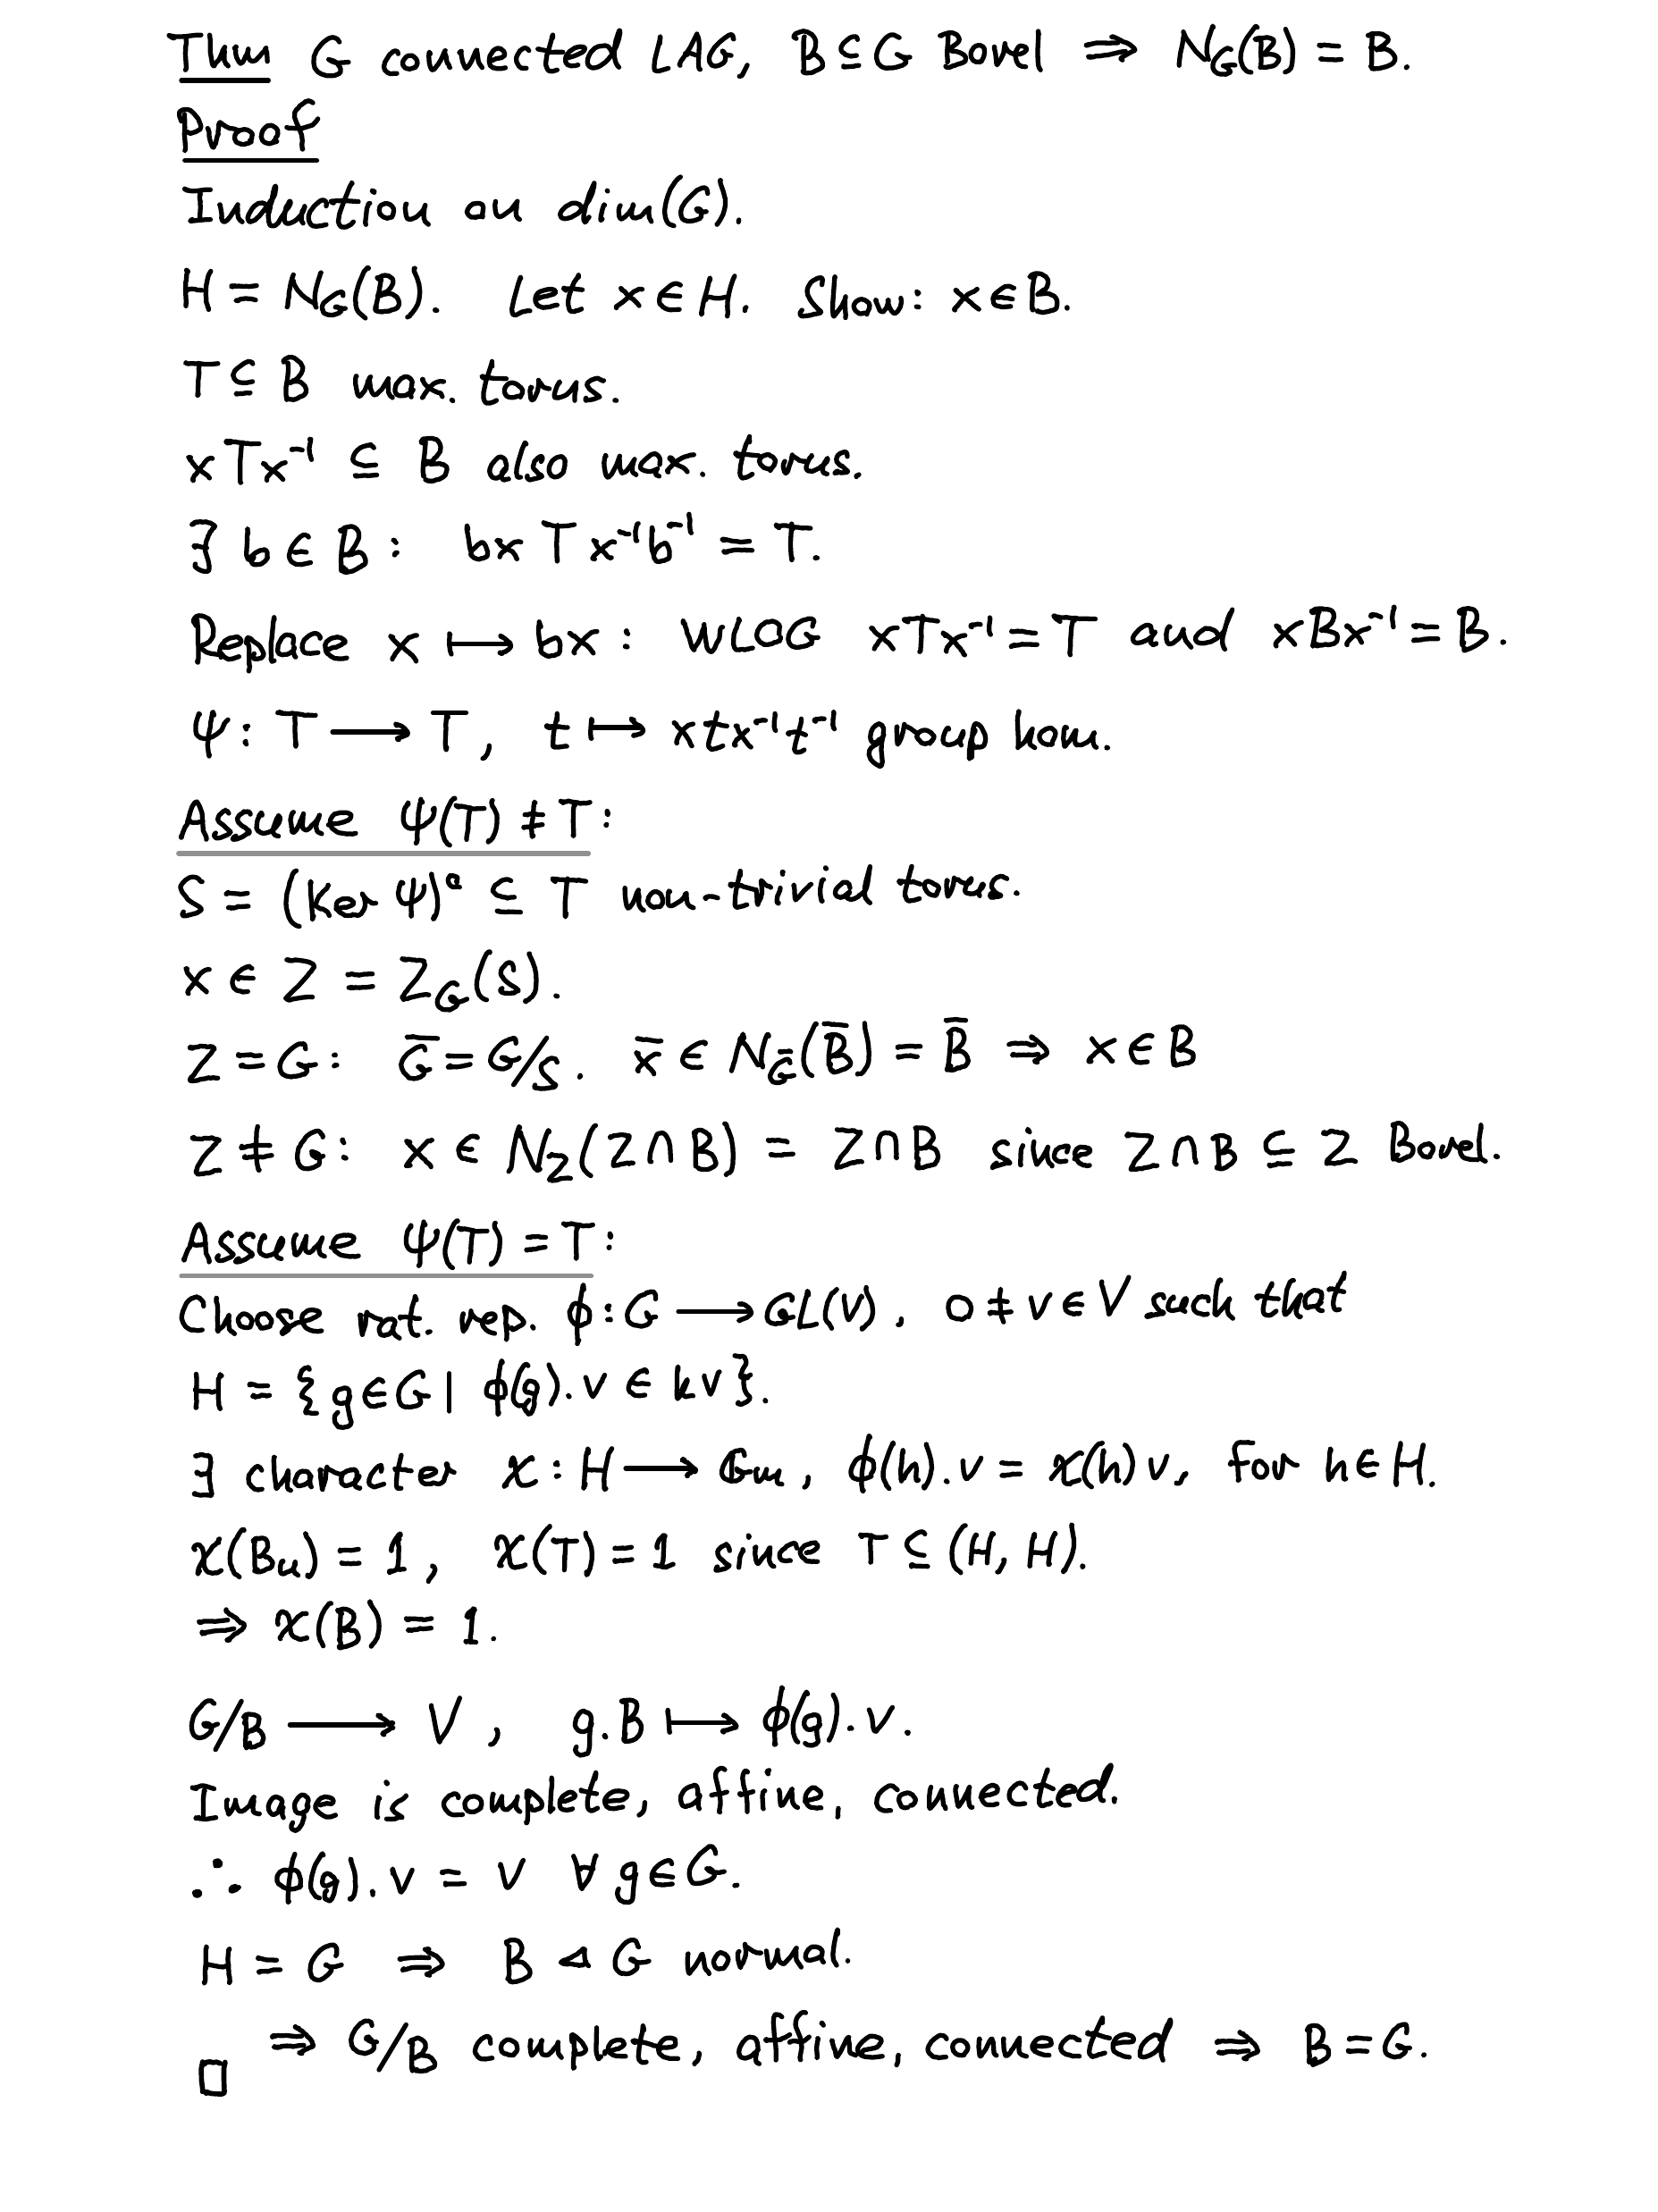 Thm G connected LAG, B ⊆ G Borel ⇒ N_G(B) = B.
Proof
Induction on dim(G).
H = N_G(B). Let x ∈ H. Show: x ∈ B.
T ⊆ B max. torus.
xTx⁻¹ ⊆ B also max. torus.
∃ b ∈ B : bx T x⁻¹b⁻¹ = T.
Replace x ⟼ bx : WLOG xTx⁻¹ = T and xBx⁻¹ = B.
ψ : T ⟶ T, t ⟼ xtx⁻¹t⁻¹ group hom.
Assume ψ(T) ≠ T :
S = (Ker ψ)° ⊆ T non-trivial torus.
x ∈ Z = Z_G(S).
Z = G : G̅ = G/S. x̅ ∈ N_G̅(B̅) = B̅ ⇒ x ∈ B
Z ≠ G : x ∈ N_Z(Z ∩ B) = Z ∩ B since Z ∩ B ⊆ Z Borel.
Assume ψ(T) = T :
Choose rat. rep. ϕ : G ⟶ GL(V), 0 ≠ v ∈ V such that
H = {g ∈ G | ϕ(g).v ∈ kv}.
∃ character χ : H ⟶ 𝔾m, ϕ(h).v = χ(h)v, for h ∈ H.
χ(B_u) = 1, χ(T) = 1 since T ⊆ (H, H).
⇒ χ(B) = 1.
G/B ⟶ V, g.B ⟼ ϕ(g).v.
Image is complete, affine, connected.
∴ ϕ(g).v = v ∀ g ∈ G.
H = G ⇒ B ⊲ G normal.
⇒ G/B complete, affine, connected ⇒ B = G.
□